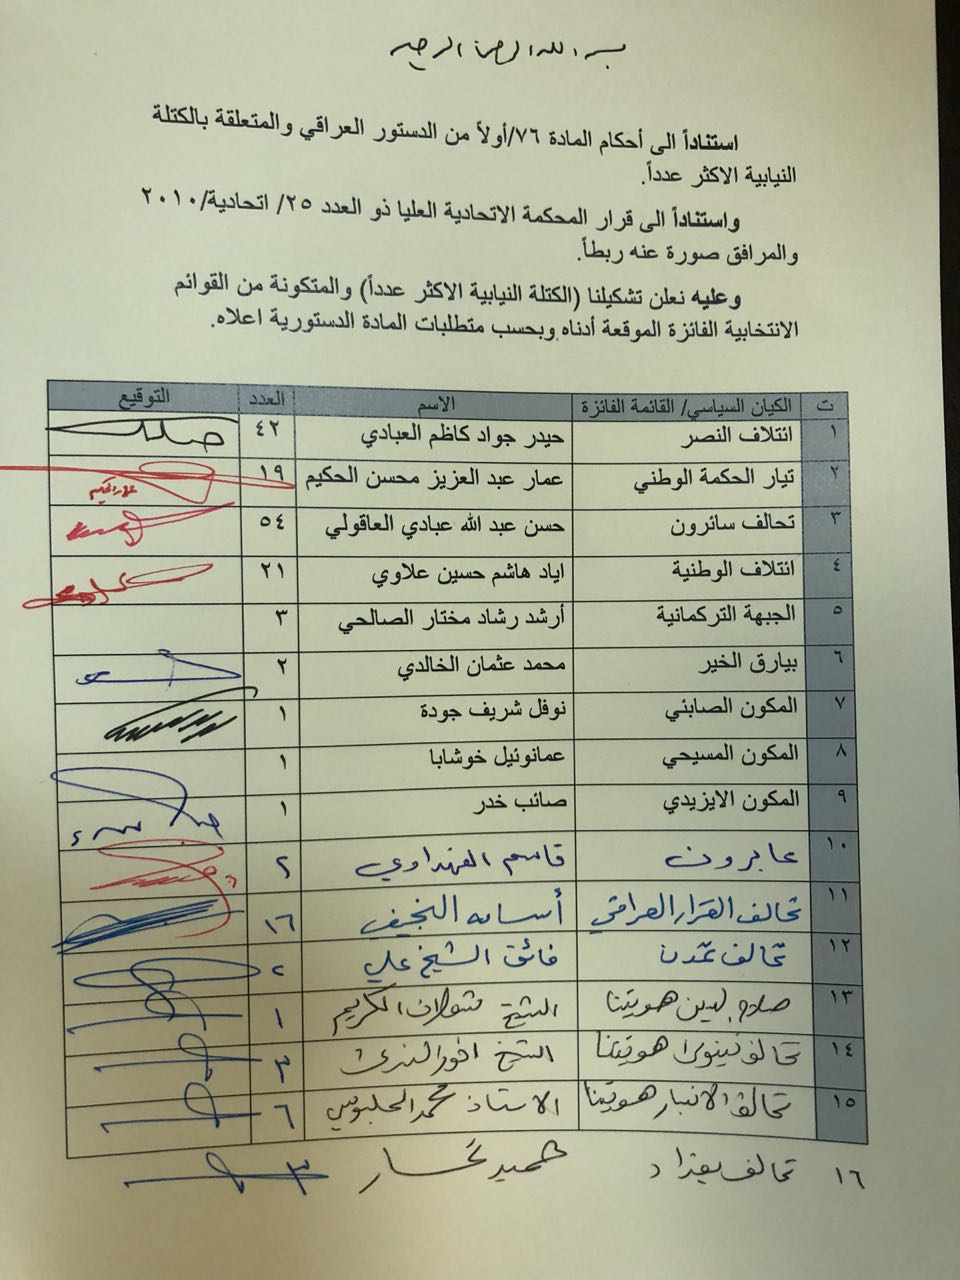 بسم الله الرحمن الرحيم
استناداً الى أحكام المادة ٧٦/أولاً من الدستور العراقي والمتعلقة بالكتلة
النيابية الاكثر عدداً.
واستناداً الى قرار المحكمة الاتحادية العليا ذو العدد ٢٥/ اتحادية/٢٠١٠
والمرافق صورة عنه ربطاً.
وعليه نعلن تشكيلنا (الكتلة النيابية الاكثر عدداً) والمتكونة من القوائم
الانتخابية الفائزة الموقعة أدناه وبحسب متطلبات المادة الدستورية اعلاه.
ت الكيان السياسي/ القائمة الفائزة الاسم العدد التوقيع
١ ائتلاف النصر حيدر جواد كاظم العبادي ٤٢
٢ تيار الحكمة الوطني عمار عبد العزيز محسن الحكيم ١٩
٣ تحالف سائرون حسن عبد الله عبادي العاقولي ٥٤
٤ ائتلاف الوطنية اياد هاشم حسين علاوي ٢١
٥ الجبهة التركمانية أرشد رشاد مختار الصالحي ٣
٦ بيارق الخير محمد عثمان الخالدي ٢
٧ المكون الصابئي نوفل شريف جودة ١
٨ المكون المسيحي عمانوئيل خوشابا ١
٩ المكون الايزيدي صائب خدر ١
١٠ عابرون قاسم الفهداوي ٢
١١ تحالف القرار العراقي أسامه النجيفي ١٦
١٢ تحالف تمدن فائق الشيخ علي ٢
١٣ هويتنا الشيخ الكريم ١
١٤ تحالف نينوى هويتنا الشيخ ٣
١٥ تحالف الانبار هويتنا الاستاذ محمد الحلبوسي ٦
١٦ تحالف بغداد ٣